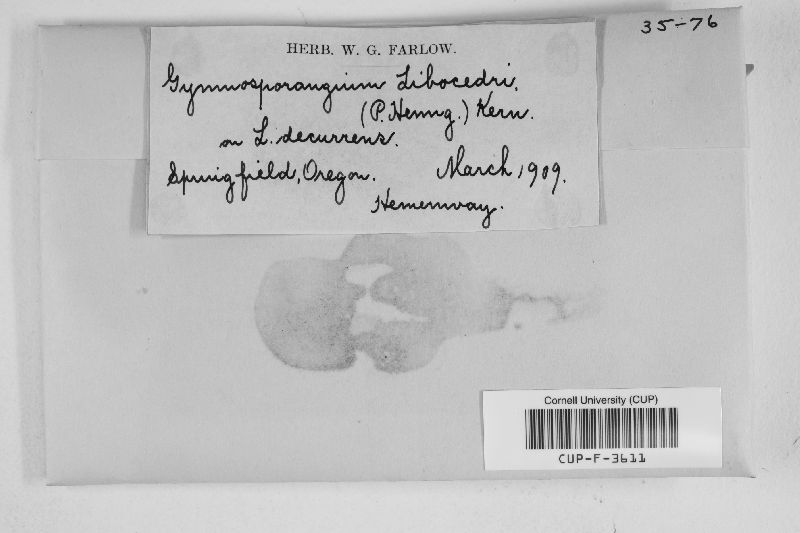 35-76
HERB. W. G. FARLOW.
Gymnosporangium Libocedri.
(P. Henng.) Kern.
on L. decurrens.
Springfield, Oregon. March, 1909.
Hemenway.
Cornell University (CUP)
CUP-F-3611